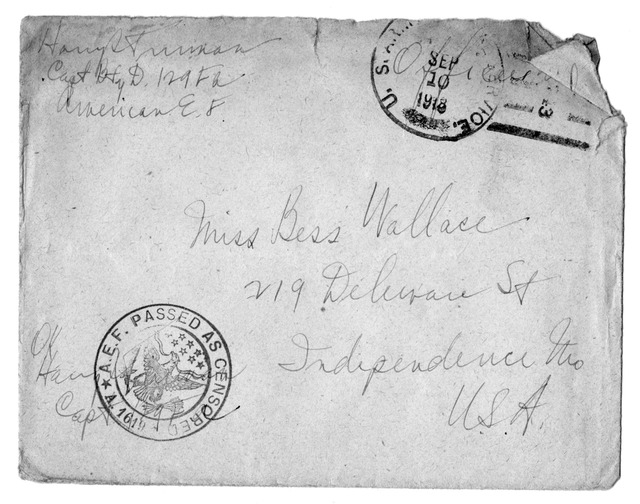 Harry S Truman
Capt Bty D. 129 F.A
American E. F.
U. S.
SEP
10
1918
VICE.
3
Miss Bess Wallace
219 Delaware St
Independence Mo
U.S.A.
A.E.F. PASSED AS CENSORED
OK
Capt